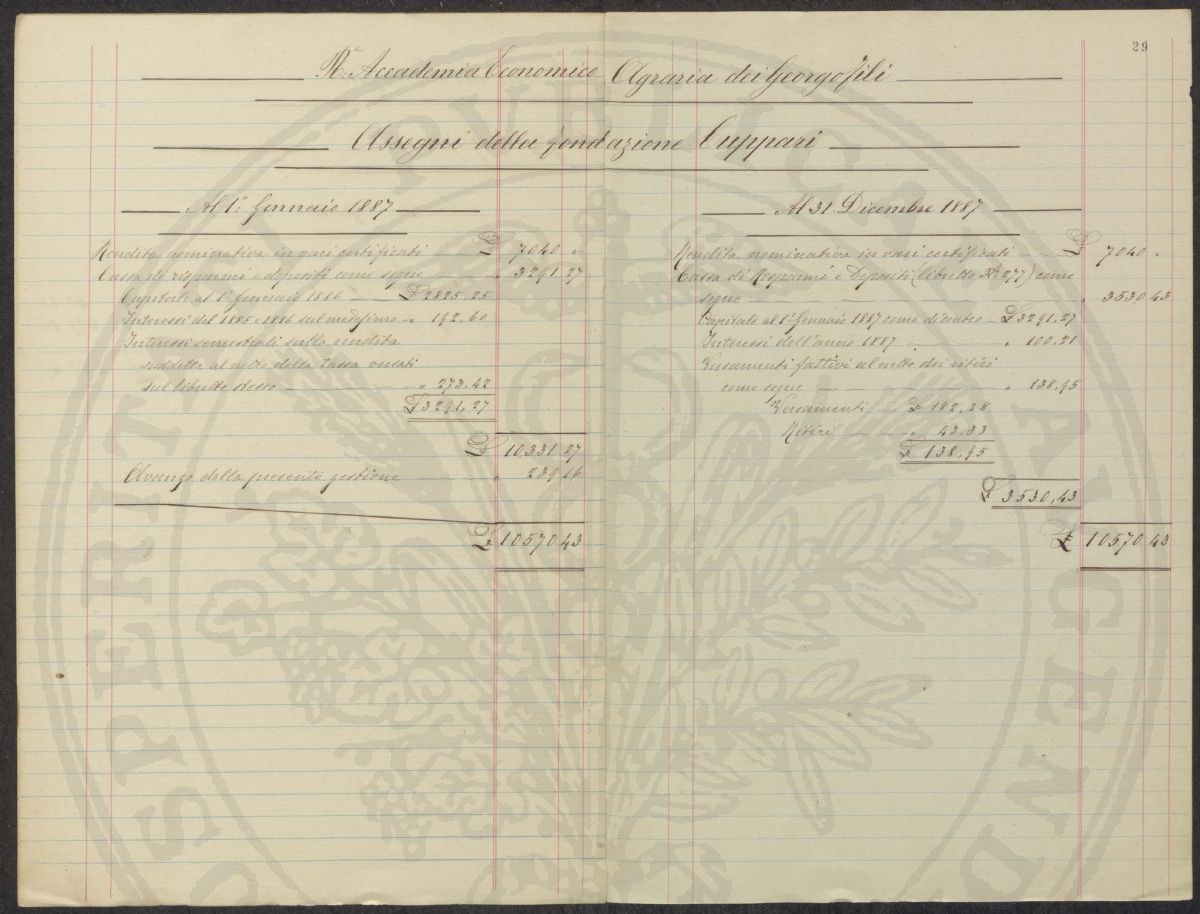 29
R.ª Accademia Economico Agraria dei Georgofili
Assegni della fondazione Cuppari
Al 1º Gennaio 1887
Rendita nominativa in vari certificati £ 7040 "
Cassa di risparmi e depositi come segue " 3291 27
Capitale al 1º Gennaio 1886 £ 2825,25
Interessi del 1885 e 1886 sul medesimo " 192,60
Interessi semestrali sulla rendita
suddetta al netto della tassa versati
sul libretto stesso " 273,42
£ 3291,27
£ 10,331 27
Avanzo della presente gestione " 239 16
£ 10570 43
Al 31 Dicembre 1887
Rendita nominativa in vari certificati £ 7040 "
Cassa di Risparmi e Depositi (libretto Nº 277) come
segue " 3530 43
Capitale al 1º Gennaio 1887 come di contro £ 3291,27
Interessi dell'anno 1887 " 100,21
Versamenti fattivi al netto dei ritiri
come segue " 138,95
Versamenti £ 182,28
Ritiri " 43,33
£ 138,95
£ 3530,43
£ 10570 43
PROSPERITATI PUBLICAE AUGENDAE